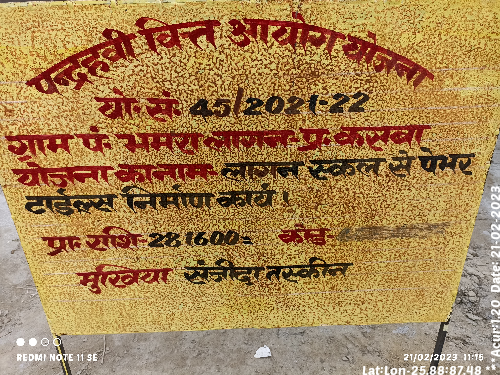 पन्द्रहवी वित्त आयोग योजना
यो० सं० 45/2021-22
ग्राम पं० भमरा लागन- प्र० कसबा
योजना का नाम- लागन स्कूल से पेभर
टाईल्स निर्माण कार्य।
प्रा० राशि- 281600=
कोड-
मुखिया संजीदा तस्कीन
REDMI NOTE 11 SE
21/02/2023 11:15
Lat:Lon-25.88:87.48
Acur:1.20 Date: 21/02/2023